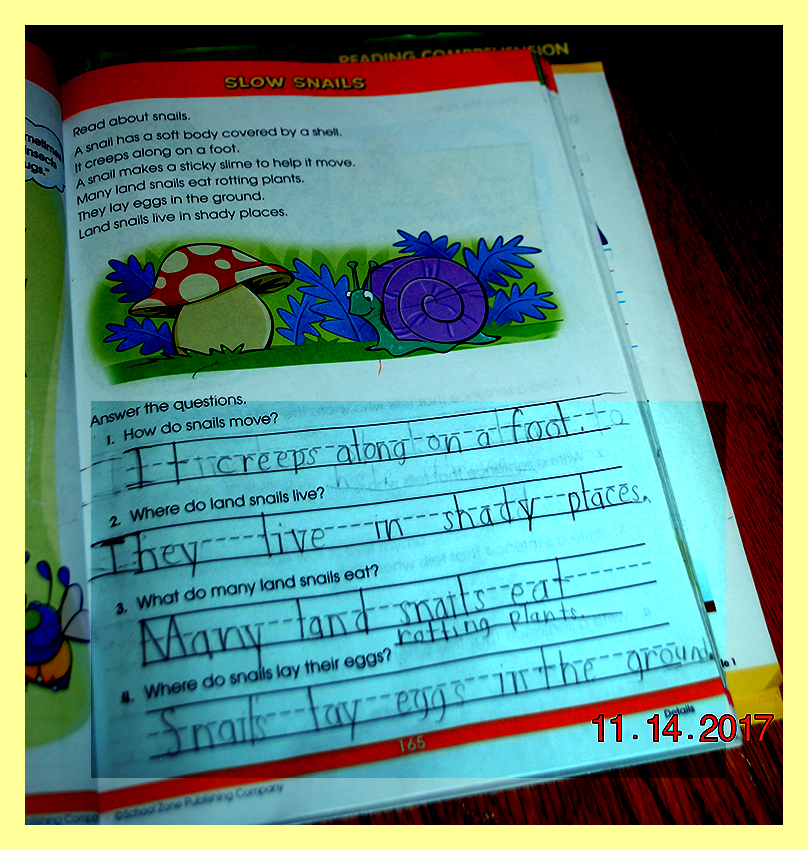 READING COMPREHENSION
SLOW SNAILS
Read about snails.
A snail has a soft body covered by a shell.
It creeps along on a foot.
A snail makes a sticky slime to help it move.
Many land snails eat rotting plants.
They lay eggs in the ground.
Land snails live in shady places.
insects
Answer the questions.
1. How do snails move?
It creeps along on a foot.
2. Where do land snails live?
They live in shady places.
3. What do many land snails eat?
Many land snails eat
rotting plants.
4. Where do snails lay their eggs?
Snails lay eggs in the ground.
Details
165
11.14.2017
©School Zone Publishing Company